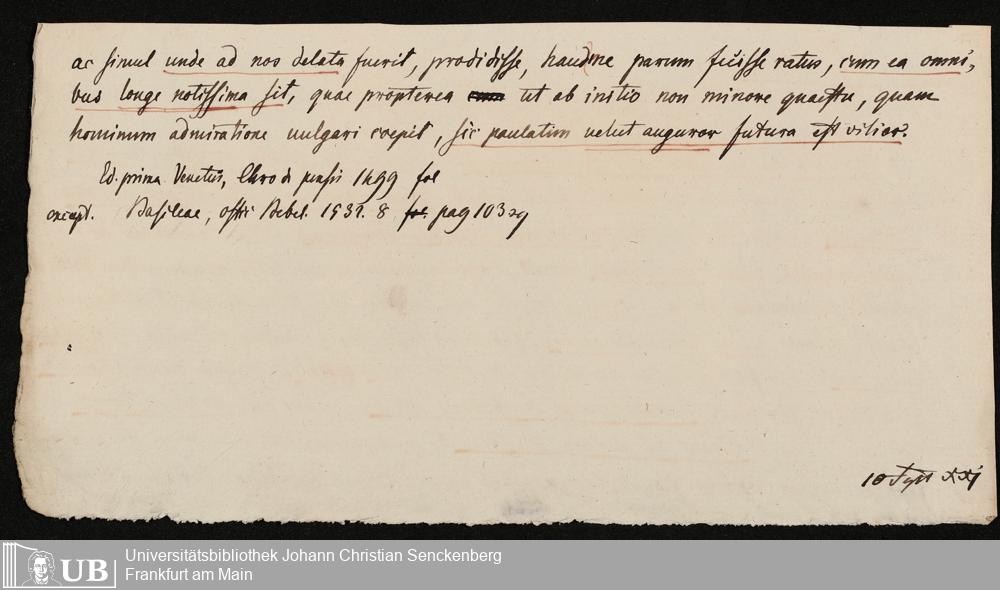 ac simul unde ad nos delata fuerit, prodidisse, haud me parum fuisse ratus, cum ea omni,
bus longe notissima sit, quae propterea ut ab initio non minore quaestu, quam
hominum admiratione uulgari coepit, sic paulatim uelut auguror futura est vilior.
Ed. prima Venetiis, 1499 fol
Basileae, Bebel. 1531. 8 fol. pag 103 sq
10
UB
Universitätsbibliothek Johann Christian Senckenberg
Frankfurt am Main